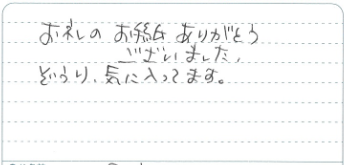 お礼の お手紙 ありがとう
ございました。
ぞうり、気に入ってます。